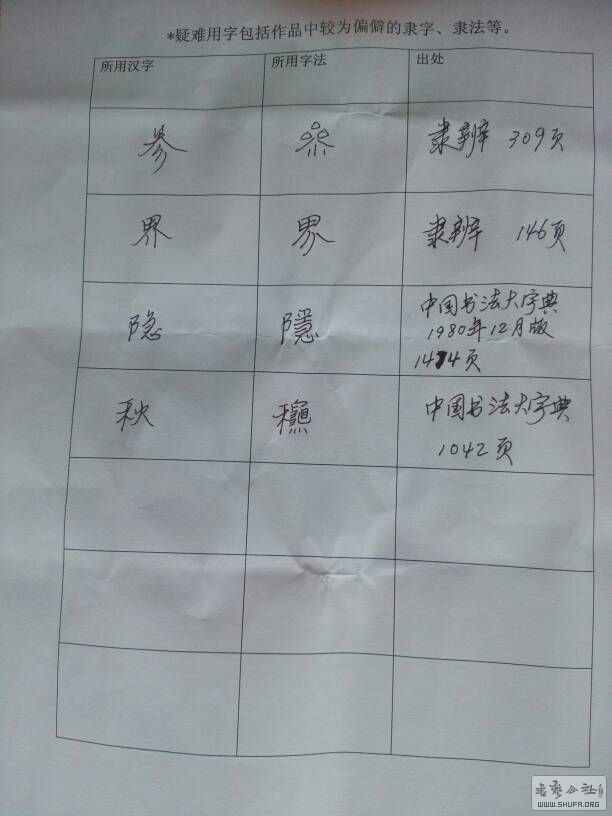 *疑难用字包括作品中较为偏僻的隶字、隶法等。
所用汉字 所用字法 出处
参 隶辨 309页
界 界 隶辨 146页
隐 隱 中国书法大字典
1980年12月版
1474页
秋 龝 中国书法大字典
1042页
书艺公社
WWW.SHUFA.ORG